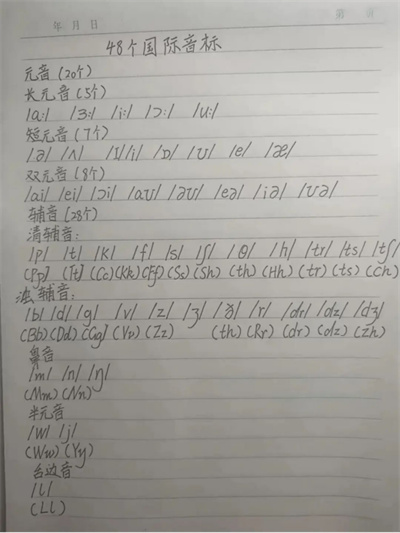 年 月 日 第 页
48个国际音标
元音(20个)
长元音(5个)
/ɑ:/ /ɜ:/ /i:/ /ɔ:/ /u:/
短元音(7个)
/ə/ /ʌ/ /I/i/ /ɒ/ /ʊ/ /e/ /æ/
双元音(8个)
/ai/ /ei/ /ɔi/ /aʊ/ /əʊ/ /eə/ /iə/ /ʊə/
辅音(28个)
清辅音:
/p/ /t/ /k/ /f/ /s/ /ʃ/ /θ/ /h/ /tr/ /ts/ /tʃ/
(Pp) (Tt) (Cc)(Kk)(Ff)(Ss)(Sh) (th) (Hh) (tr) (ts) (ch)
浊辅音:
/b/ /d/ /g/ /v/ /z/ /ʒ/ /ð/ /r/ /dr/ /dz/ /dʒ/
(Bb)(Dd)(Gg)(Vv)(Zz) (th)(Rr)(dr)(dz)(zh)
鼻音
/m/ /n/ /ŋ/
(Mm)(Nn)
半元音
/w/ /j/
(Ww)(Yy)
舌边音
/l/
(Ll)